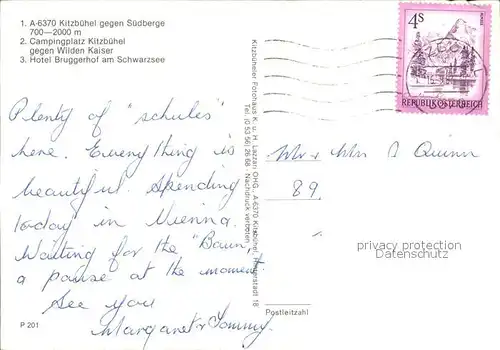 1. A-6370 Kitzbühel gegen Südberge
700—2000 m
2. Campingplatz Kitzbühel
gegen Wilden Kaiser
3. Hotel Bruggerhof am Schwarzsee
Plenty of "schules"
here. Everything is
beautiful. Spending
today in Vienna.
Waiting for the "Baun",
a pause at the moment
See you
Margaret & Tommy.
P 201
Kitzbüheler Fotohaus K. u. H. Lazzari OHG., A-6370 Kitzbühel
Tel. (0 53 56) 26 68 · Nachdruck verboten
4s
REPUBLIK ÖSTERREICH
Mr & Mrs Quinn
89.
privacy protection
Datenschutz
Postleitzahl